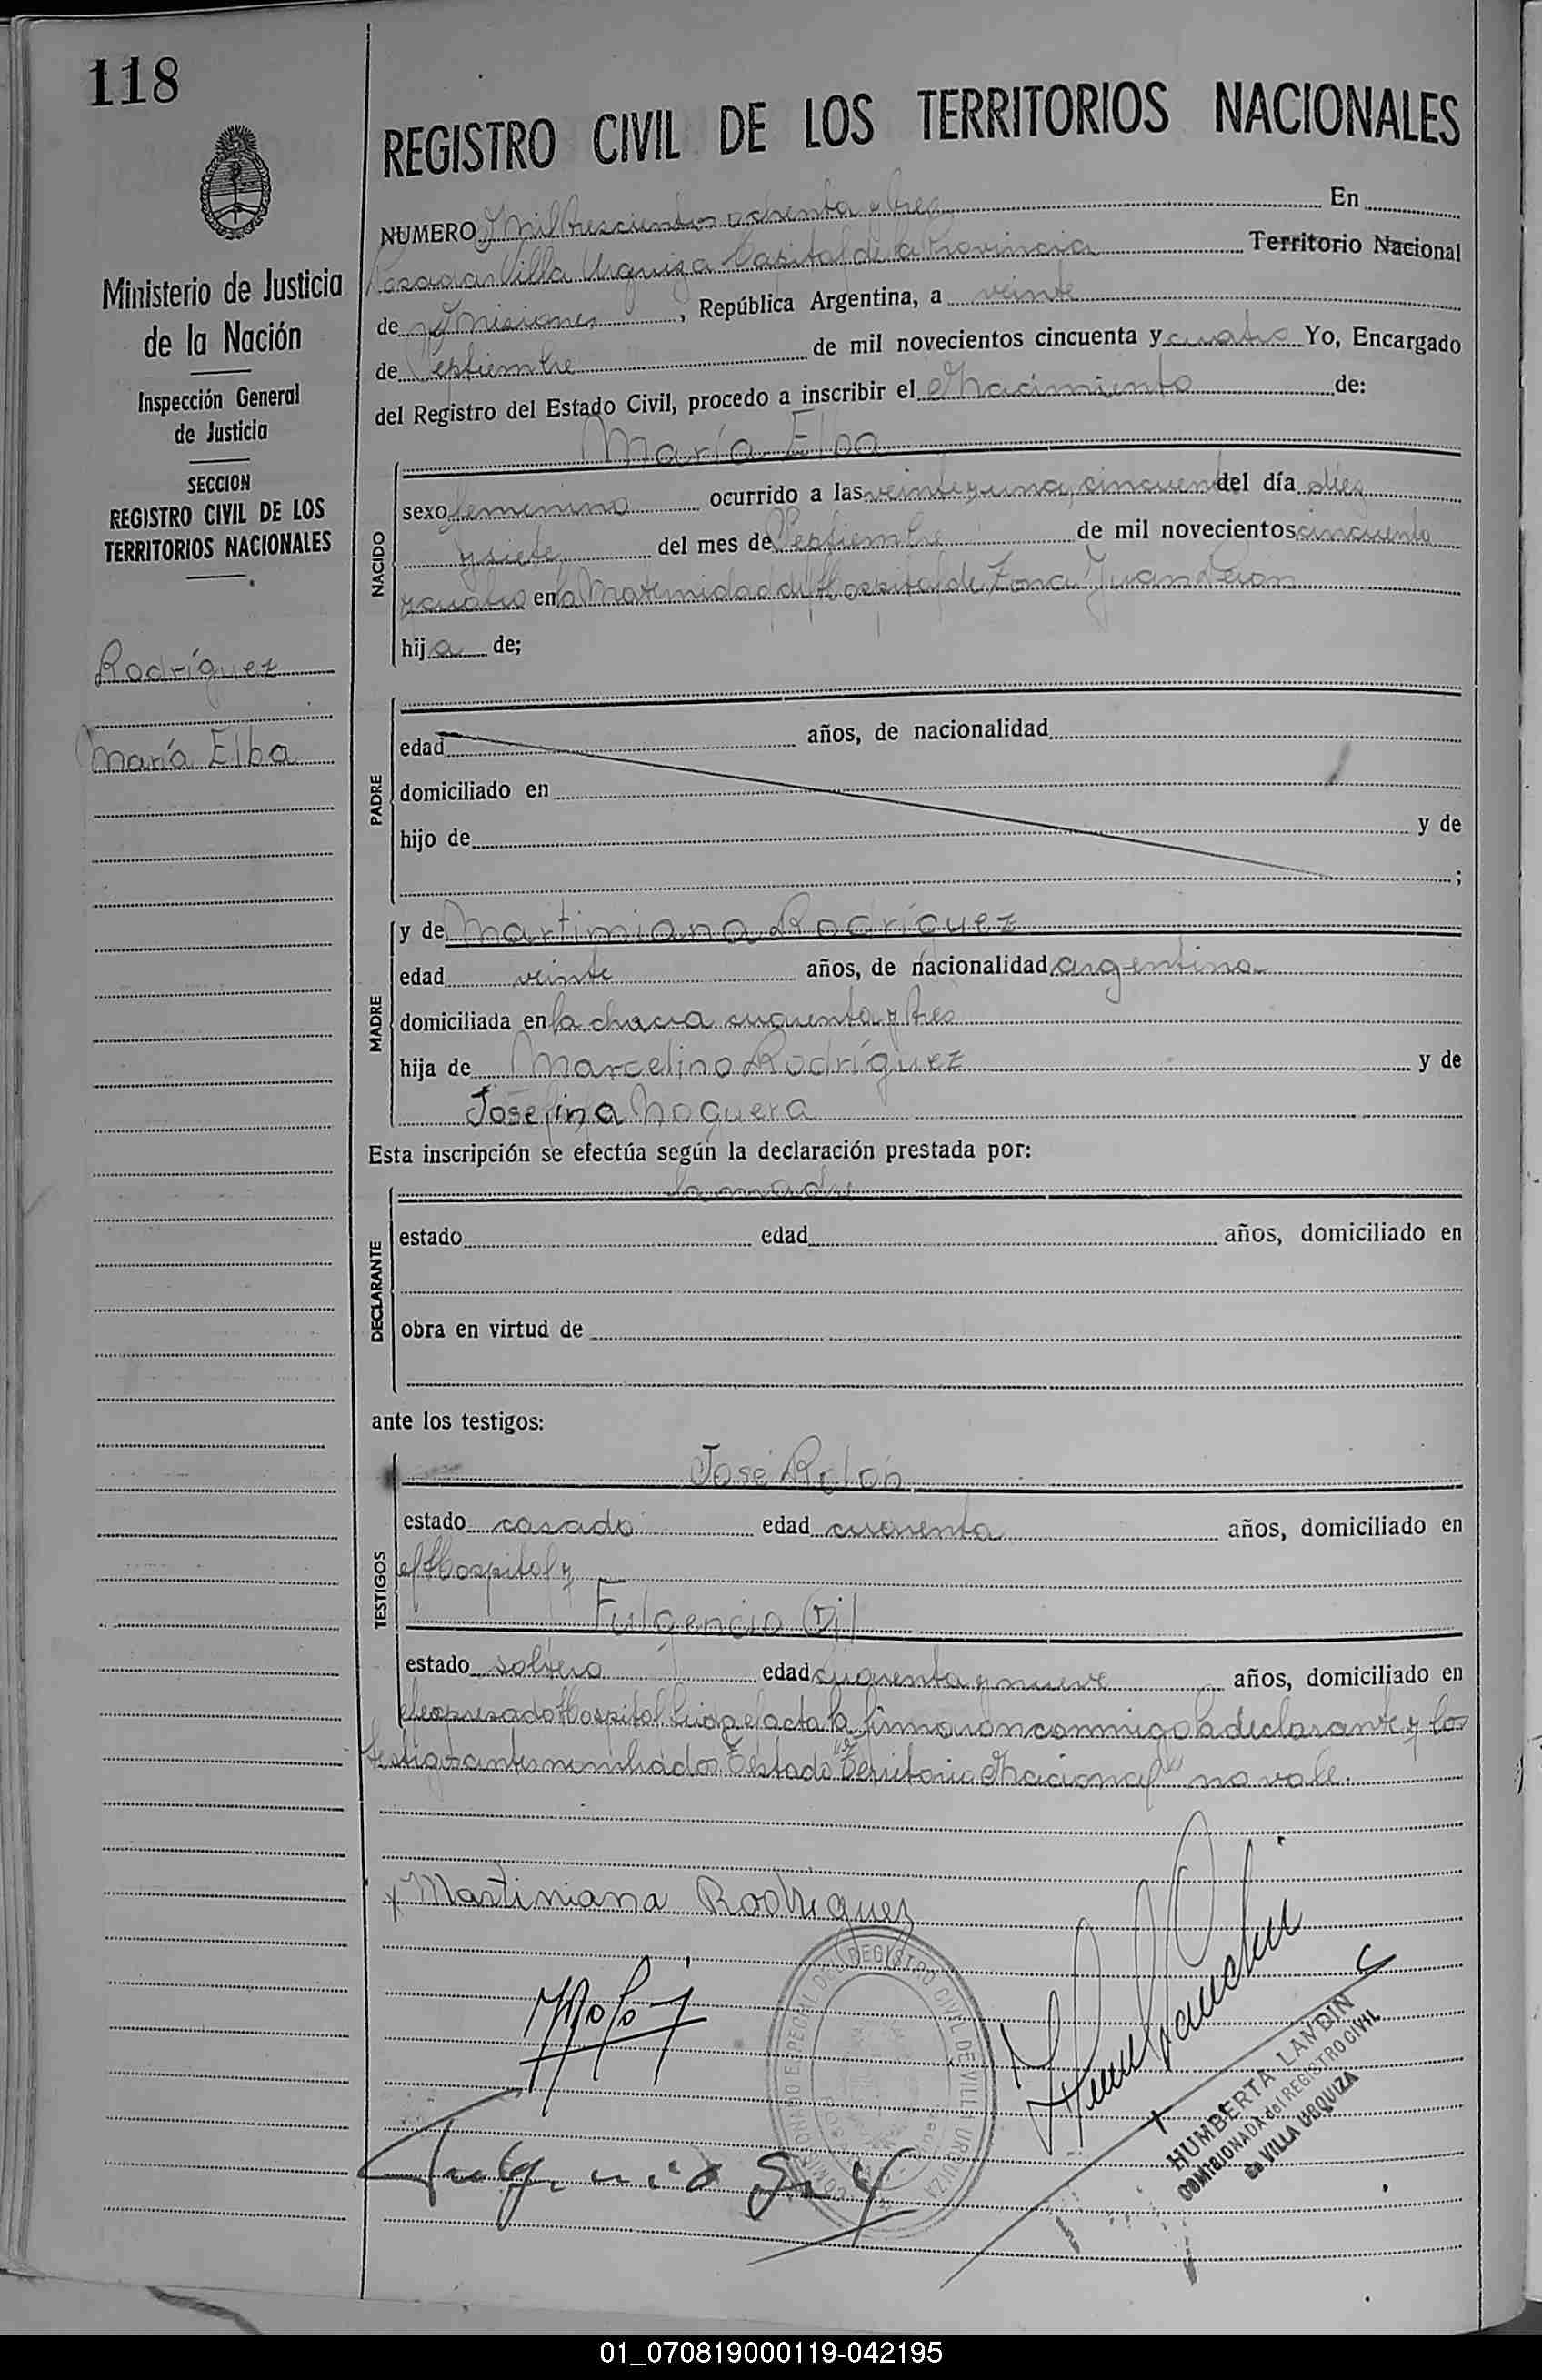 118
REGISTRO CIVIL DE LOS TERRITORIOS NACIONALES
Ministerio de Justicia
de la Nación
Inspección General
de Justicia
SECCION
REGISTRO CIVIL DE LOS
TERRITORIOS NACIONALES
Rodríguez
María Elba
NUMERO Mil trescientos ochenta y tres En
Posadas Villa Urquiza Capital de la Provincia Territorio Nacional
de Misiones, República Argentina, a veinte
de Septiembre de mil novecientos cincuenta y cuatro Yo, Encargado
del Registro del Estado Civil, procedo a inscribir el Nacimiento de:
María Elba
NACIDO
sexo femenino ocurrido a las veinte y una, cincuenta del día diez
y siete del mes de Septiembre de mil novecientos cincuenta
y cuatro en la Maternidad del Hospital de Zona Juan
hija de;
PADRE
edad años, de nacionalidad
domiciliado en
hijo de y de
;
MADRE
y de Martiniana Rodríguez
edad veinte años, de nacionalidad argentina
domiciliada en la chacra cuarenta y tres
hija de Marcelino Rodríguez y de
Josefina Noguera
Esta inscripción se efectúa según la declaración prestada por:
DECLARANTE
la madre
estado edad años, domiciliado en
obra en virtud de
ante los testigos:
TESTIGOS
José Rolón
estado casado edad cuarenta años, domiciliado en
el Hospital y
Fulgencio Gil
estado soltero edad cuarenta y nueve años, domiciliado en
el expresado Hospital Leida el acta la firmaron conmigo la declarante y los
testigos antes nombrados. Testado "Territorio Nacional" no vale.
x Martiniana Rodriguez
COMISIONADO ESPECIAL DEL REGISTRO CIVIL DE VILLA URQUIZA
Fulgencio Gil
HUMBERTA LANDIN
COMISIONADA del REGISTRO CIVIL
de VILLA URQUIZA
01_070819000119-042195